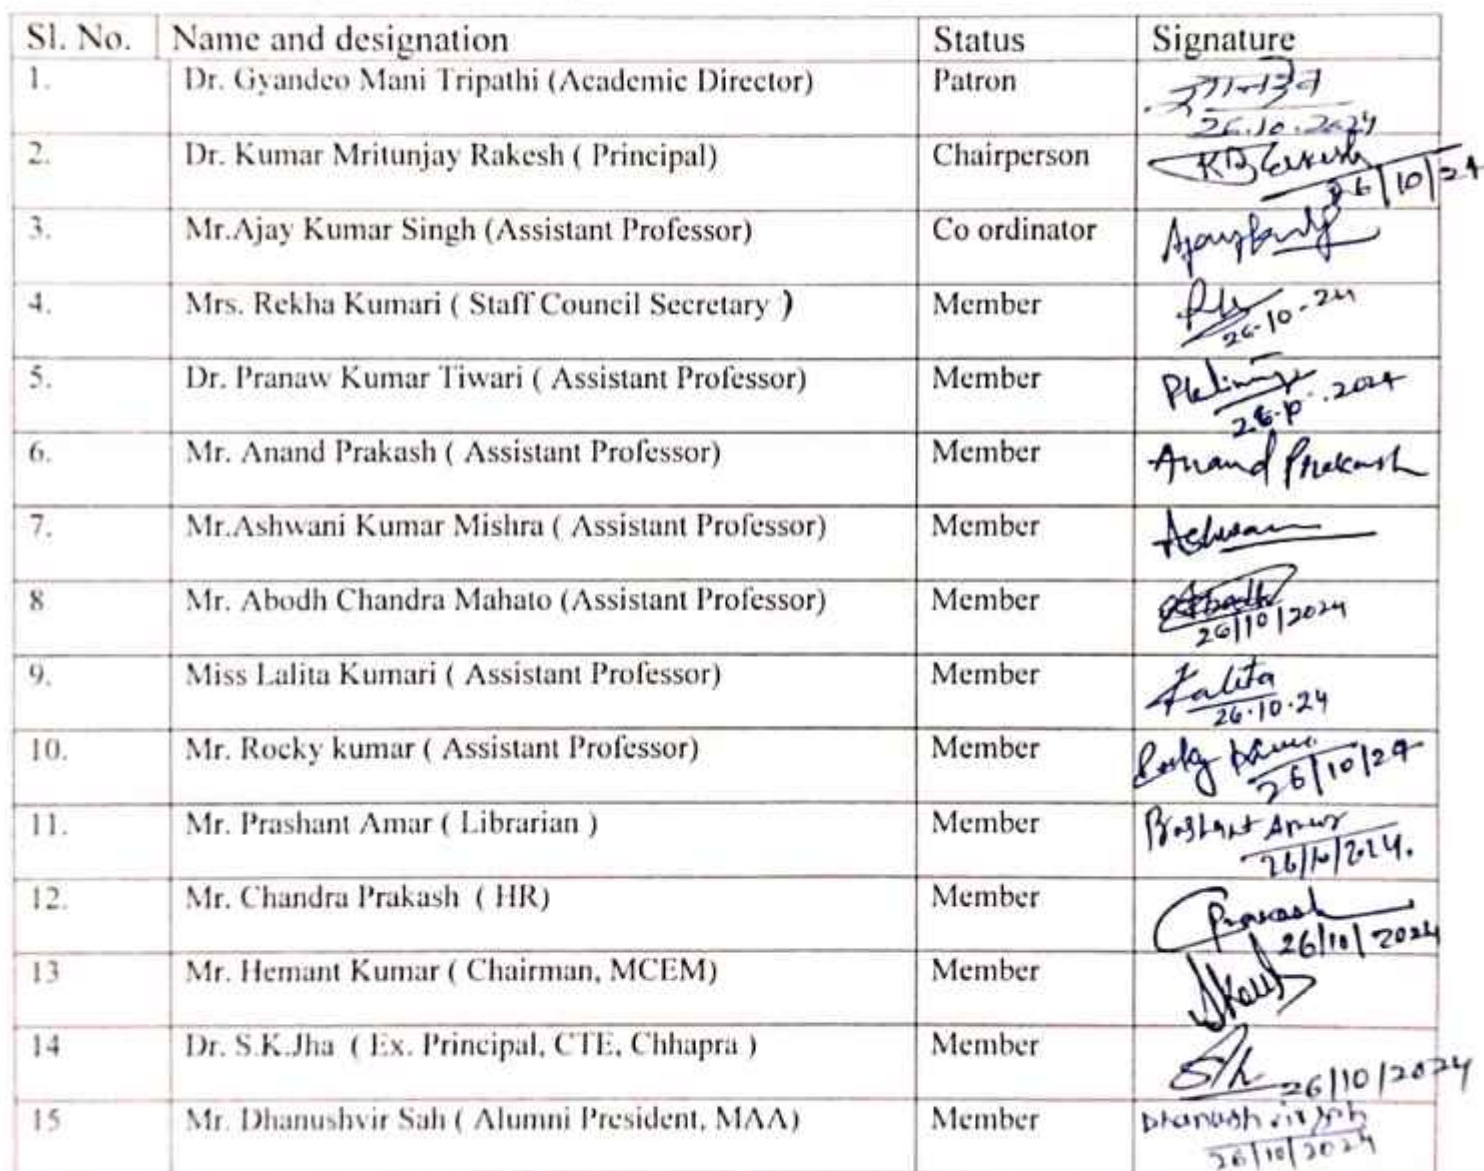 Sl. No. Name and designation Status Signature
1. Dr. Gyandeo Mani Tripathi (Academic Director) Patron ज्ञानदेव
26.10.2024
2. Dr. Kumar Mritunjay Rakesh ( Principal) Chairperson
26/10/24
3. Mr.Ajay Kumar Singh (Assistant Professor) Co ordinator
4. Mrs. Rekha Kumari ( Staff Council Secretary ) Member
26-10-24
5. Dr. Pranaw Kumar Tiwari ( Assistant Professor) Member
26.10.2024
6. Mr. Anand Prakash ( Assistant Professor) Member Anand Prakash
7. Mr.Ashwani Kumar Mishra ( Assistant Professor) Member
8 Mr. Abodh Chandra Mahato (Assistant Professor) Member Abodh
26/10/2024
9. Miss Lalita Kumari ( Assistant Professor) Member Lalita
26.10.24
10. Mr. Rocky kumar ( Assistant Professor) Member Rocky Kumar
26/10/24
11. Mr. Prashant Amar ( Librarian ) Member Prashant Amar
26/10/2024.
12. Mr. Chandra Prakash ( HR) Member CPrakash
26/10/2024
13 Mr. Hemant Kumar ( Chairman, MCEM) Member
14 Dr. S.K.Jha ( Ex. Principal, CTE, Chhapra ) Member
26/10/2024
15 Mr. Dhanushvir Sah ( Alumni President, MAA) Member Dhanushvir Sah
26/10/2024